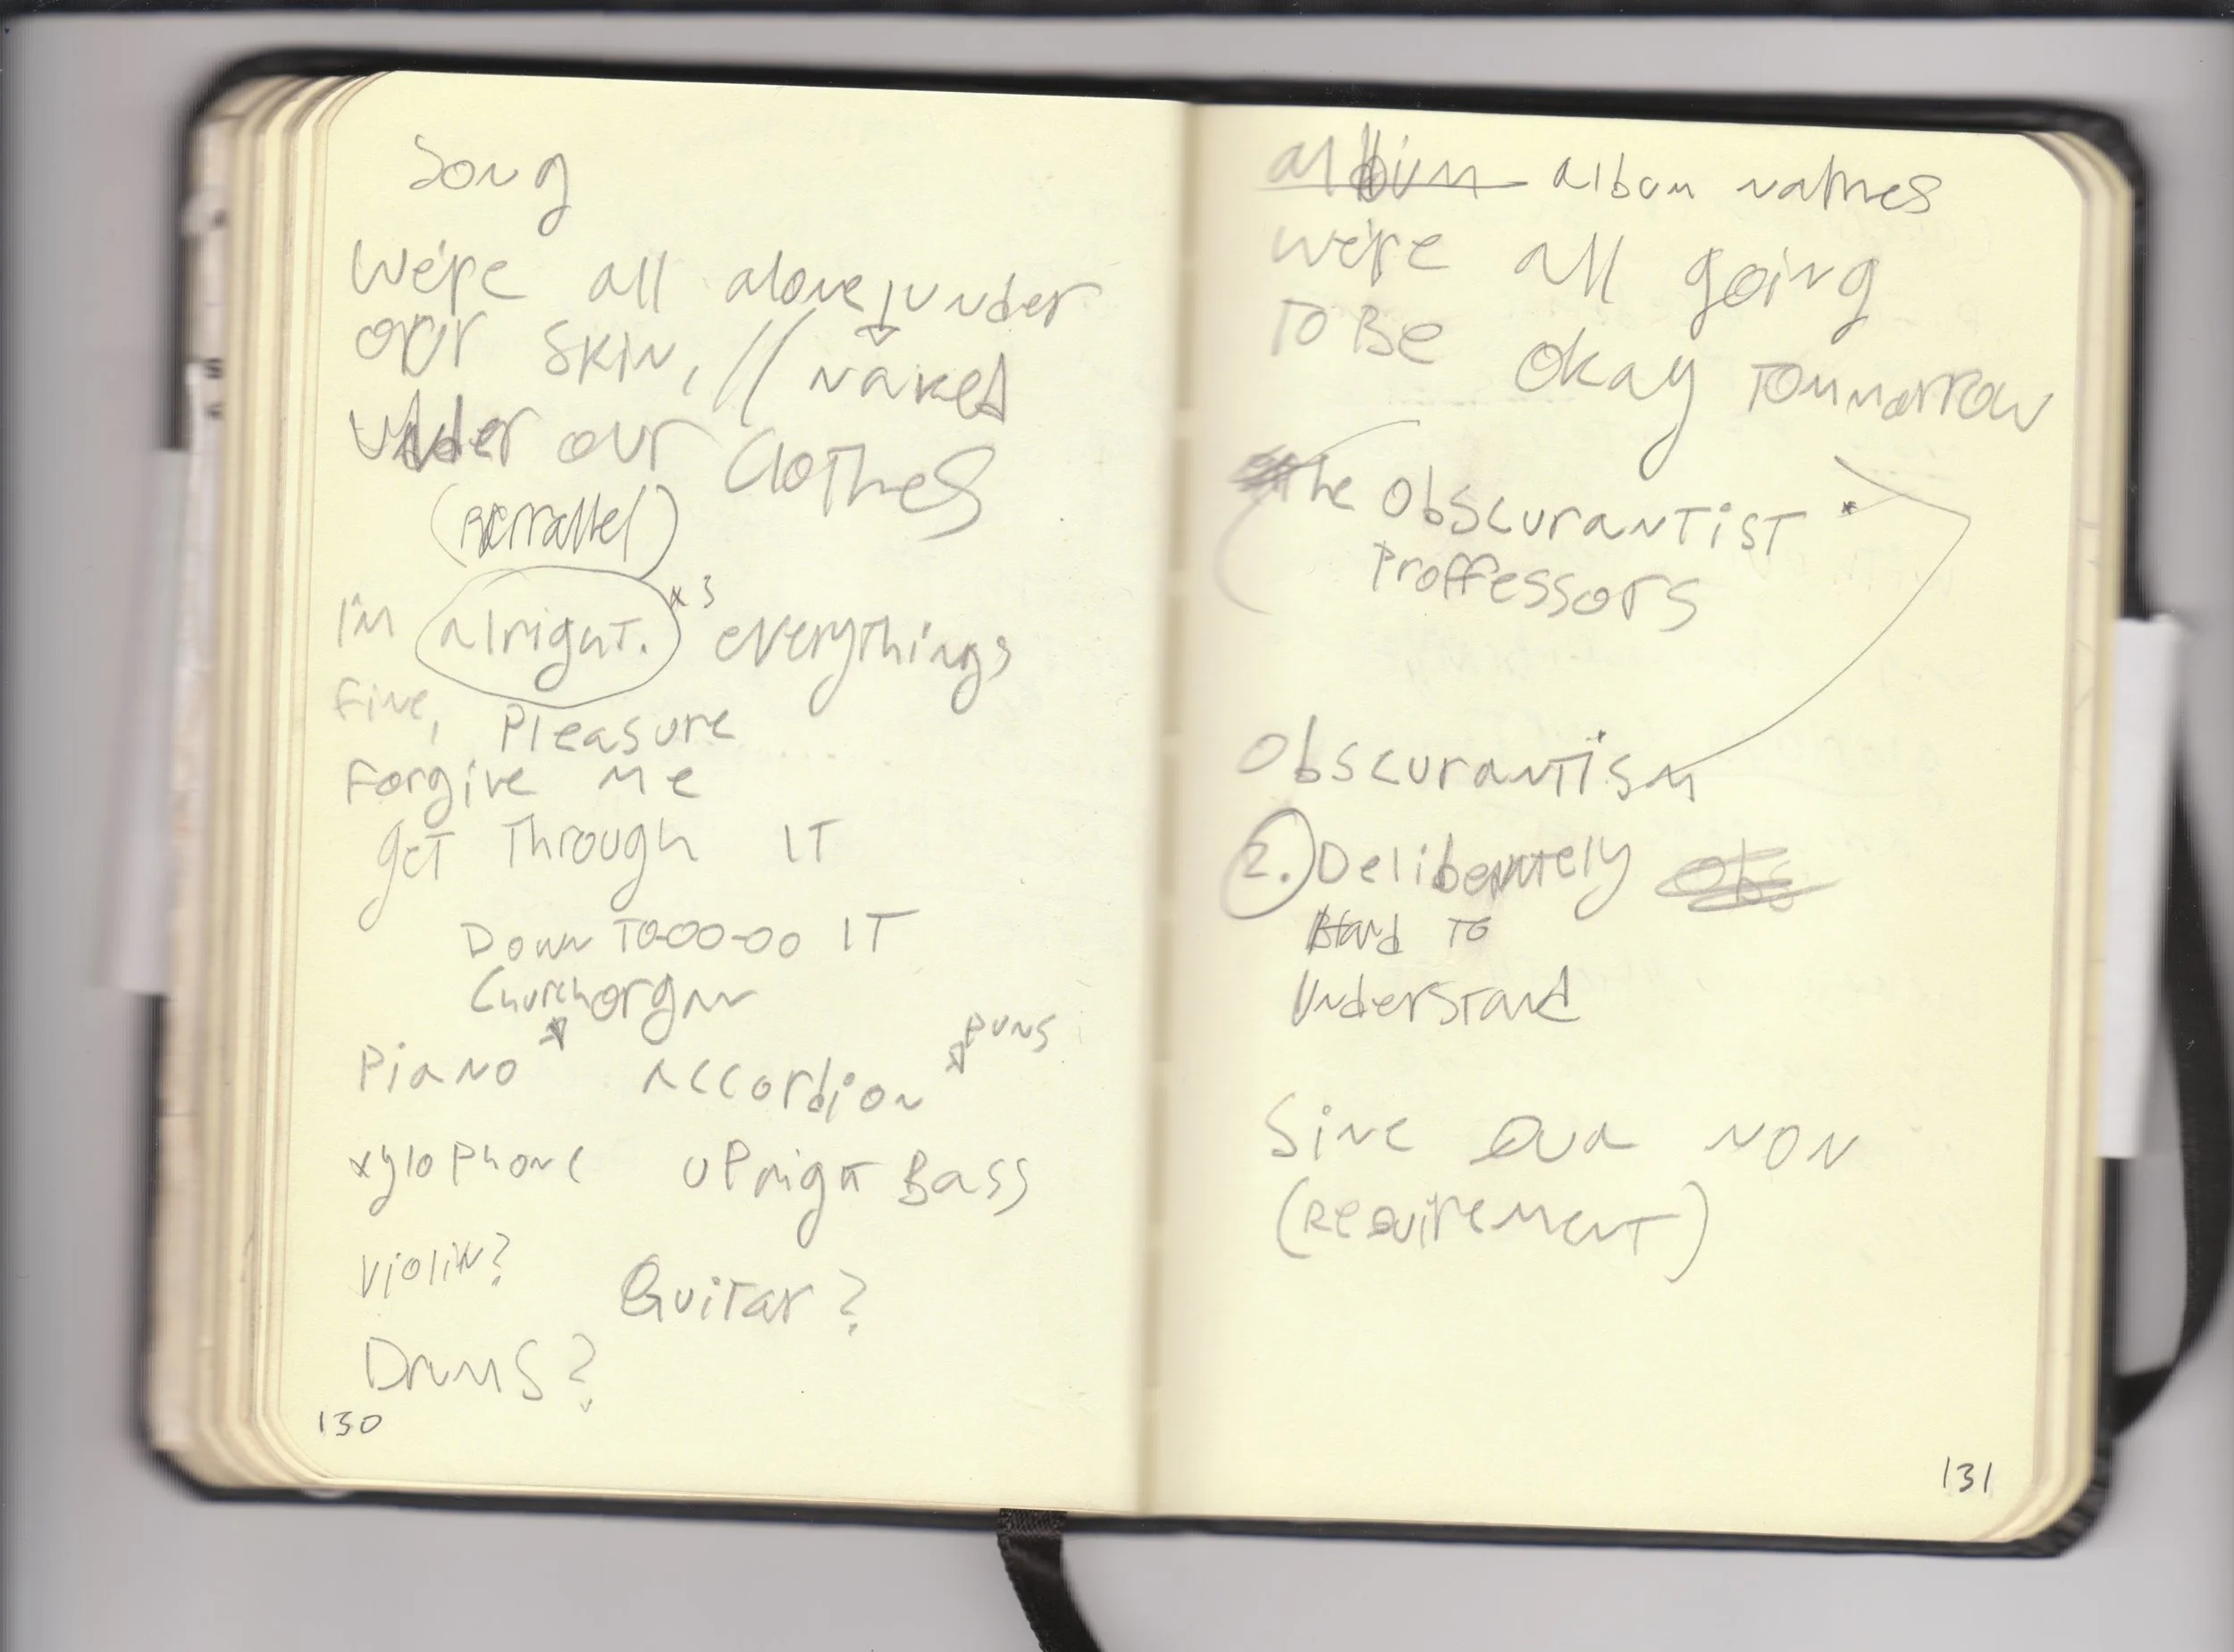 Song
We're all alone, under
our skin, // naked
under our clothes
(parrallel)
I'm alright. x3 everythings
fine, Pleasure
Forgive me
get Through IT
Down TO-OO-OO IT
Church organ
Piano accordion puns
xylophone upright Bass
violin? Guitar?
Drums?
130
album album names
we're all going
TO BE okay Tommarrow
The Obscurantist *
Proffessors
Obscurantism
2. Deliberately Obs
Hard TO
Understand
Sine Qua NON
(Requirement)
131